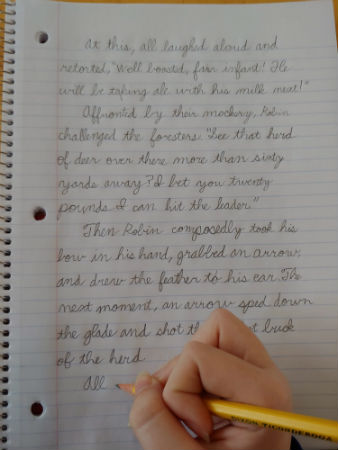 At this, all laughed aloud and
retorted, "Well boasted, fair infant! He
will be taking ale with his milk next!"
Affronted by their mockery, Robin
challenged the foresters. "See that herd
of deer over there more than sixty
yards away? I bet you twenty
pounds I can hit the leader."
Then Robin composedly took his
bow in his hand, grabbed an arrow,
and drew the feather to his ear. The
next moment, an arrow sped down
the glade and shot the buck
of the herd
All
DIXON TICONDEROGA